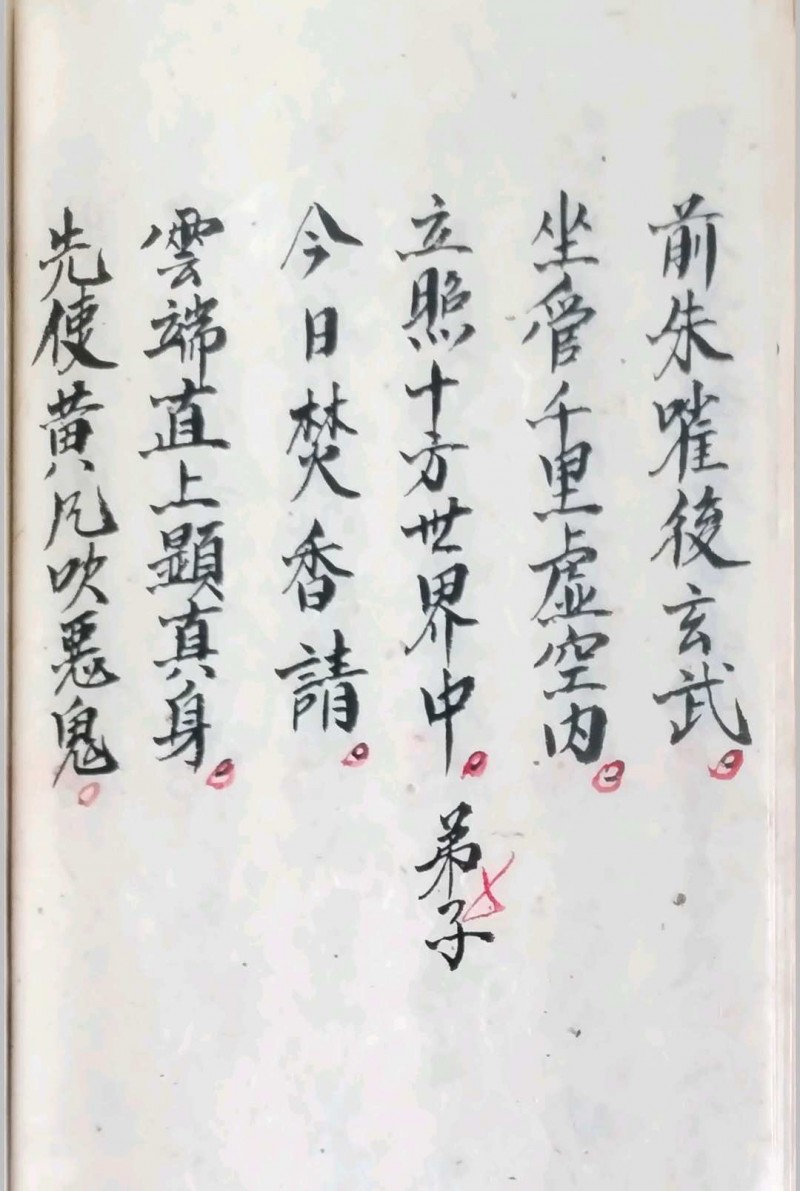 前朱嘊後玄武
坐管千里虛空内
立照十方世界中 弟子
今日焚香請
雲端直上顕真身
先使黄凢吹悪鬼